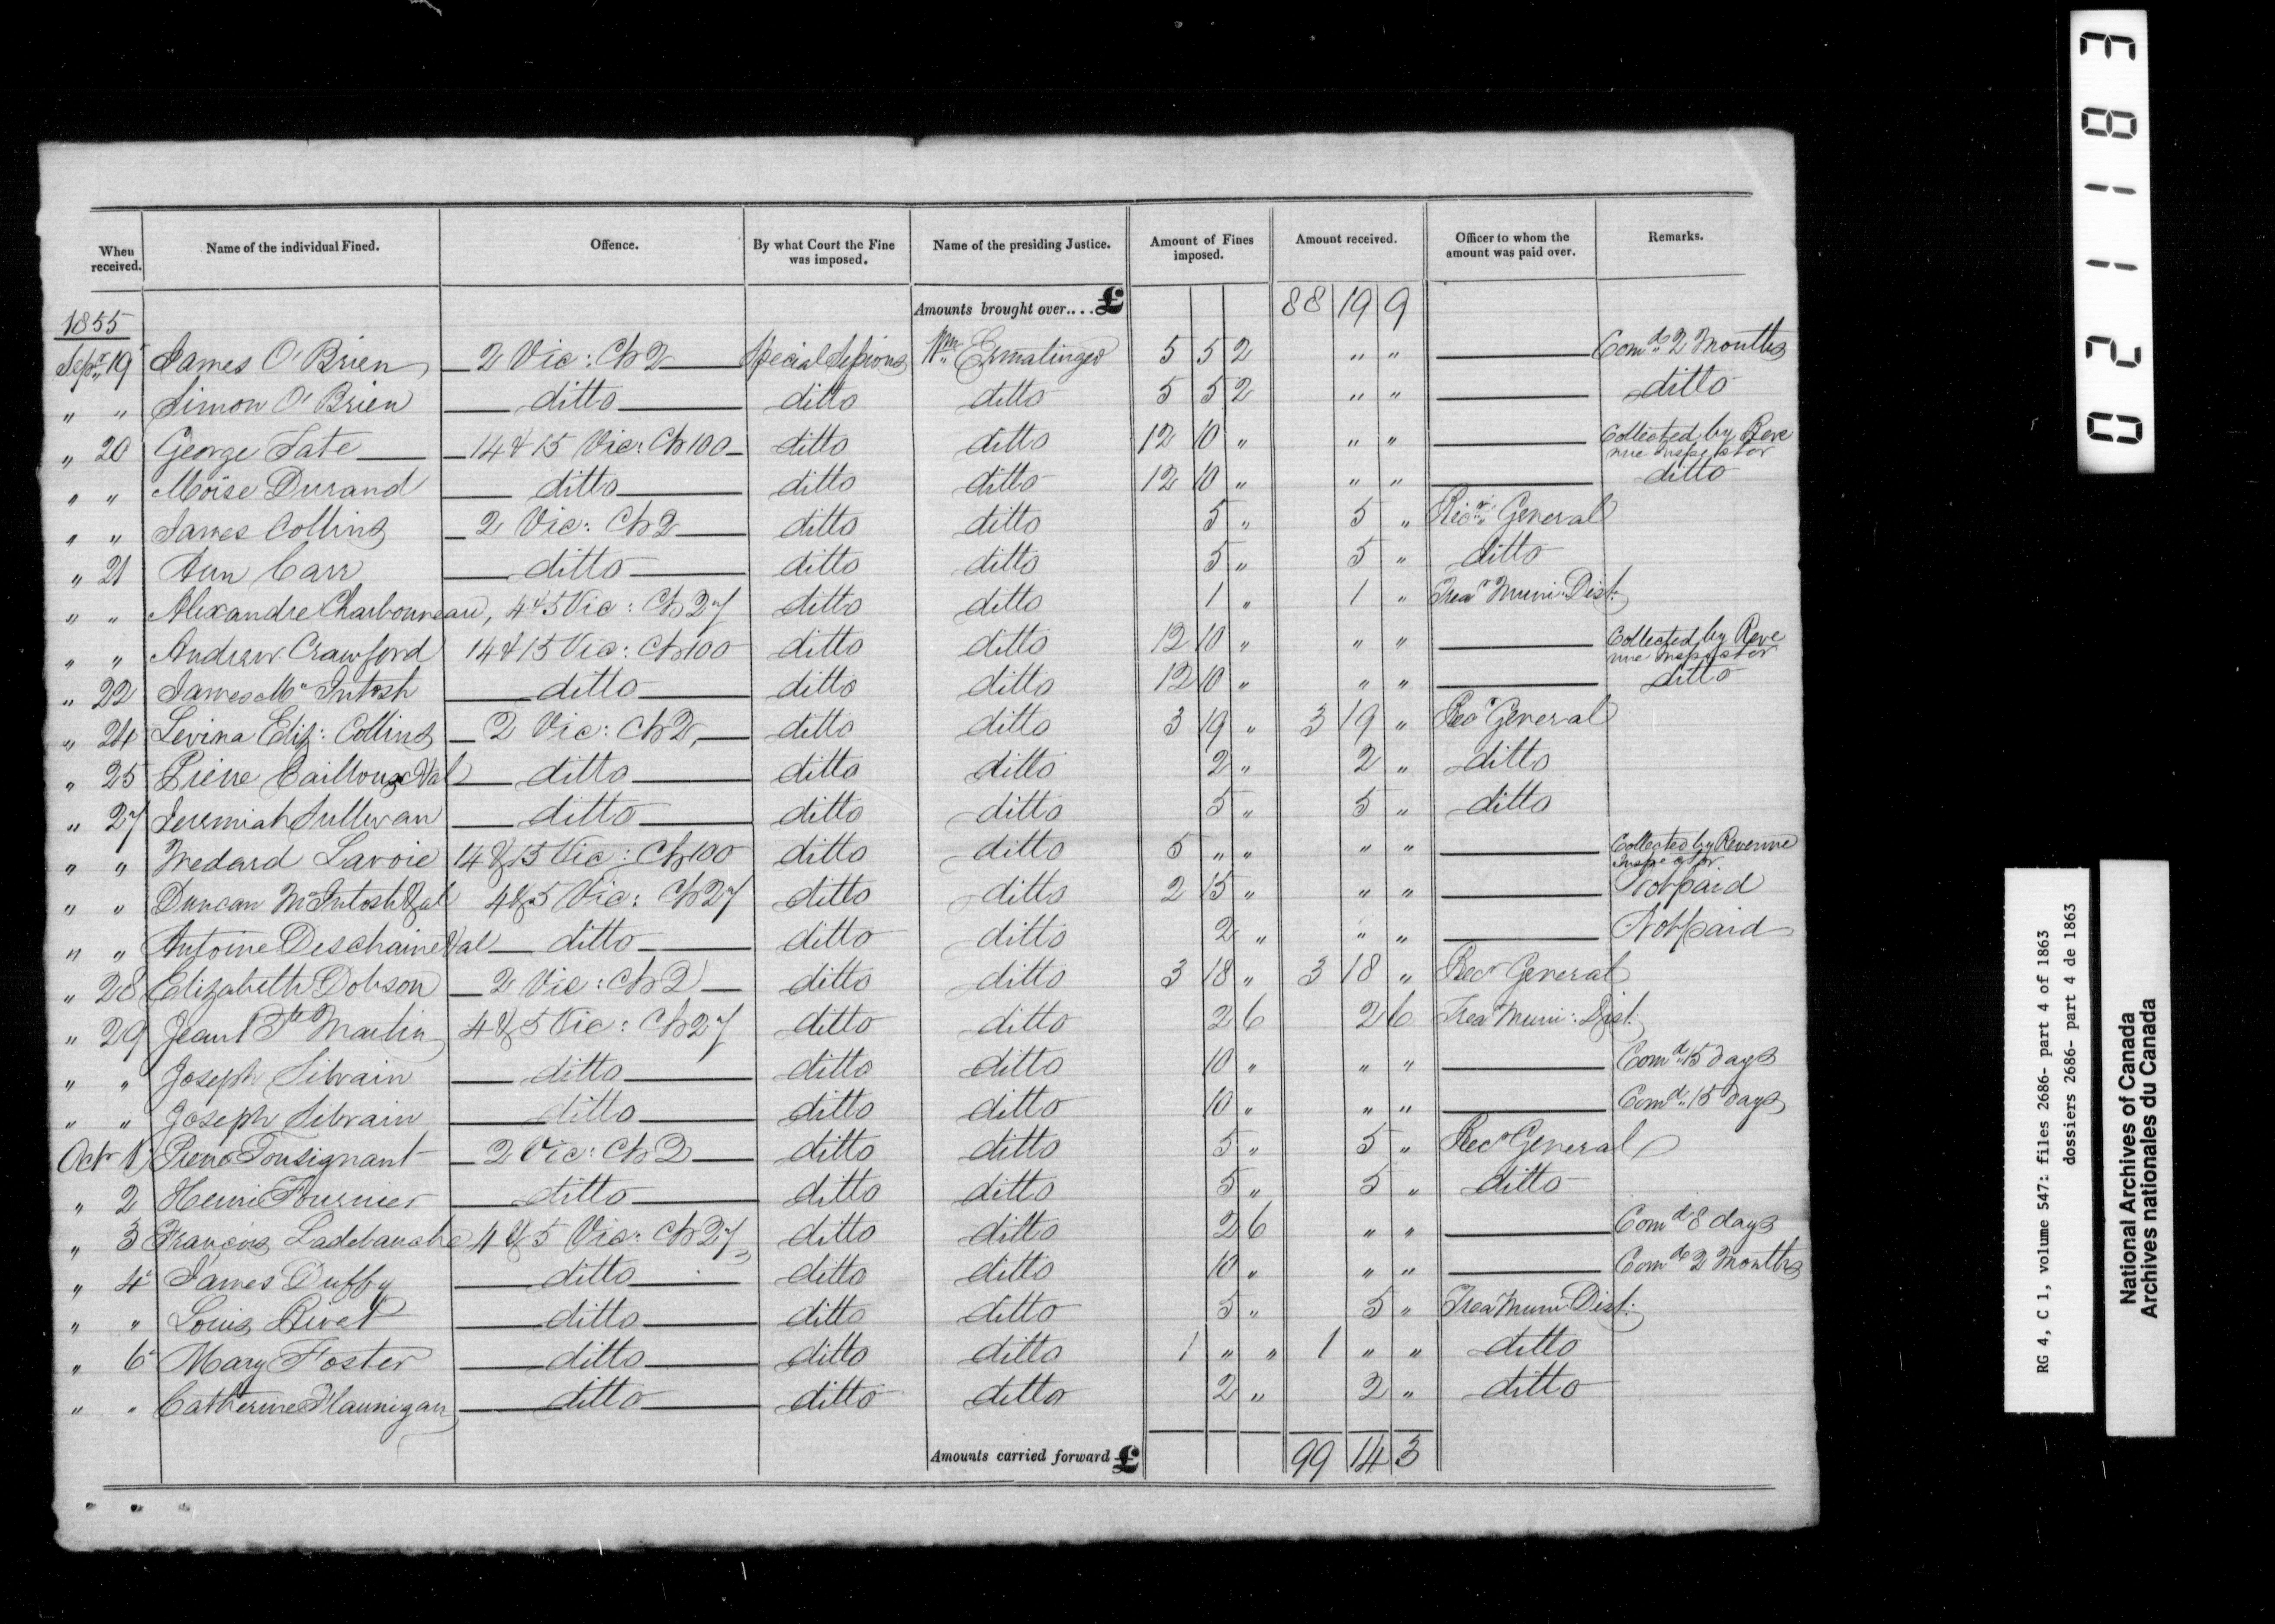 When received. Name of the individual Fined. Offence. By what Court the Fine was imposed. Name of the presiding Justice. Amount of Fines imposed. Amount received. Officer to whom the amount was paid over. Remarks.
Amounts brought over.... £ 88 19 9
1855
Sepr 19 James O'Brien 2 Vic: Ch 2 Special Sessions Wm Ermatinger 5 5 2 " " Comd 2 Months
" " Simon O'Brien ditto ditto ditto 5 5 2 " " ditto
" 20 George Tate 14 & 15 Vic: Ch 100 ditto ditto 12 10 " " " Collected by Reve
nue Inspector
" " Moïse Durand ditto ditto ditto 12 10 " " " ditto
" " James Collins 2 Vic: Ch 2 ditto ditto 5 " 5 " Recr General
" 21 Ann Carr ditto ditto ditto 5 " 5 " ditto
" " Alexandre Charbonneau, 4 & 5 Vic: Ch 27 ditto ditto 1 " 1 " Trear Muni: Dist:
" " Andrew Crawford 14 & 15 Vic: Ch 100 ditto ditto 12 10 " " " Collected by Reve
nue Inspector
" 22 James Mc Intosh ditto ditto ditto 12 10 " " " ditto
" 24 Levina Eliz: Collins 2 Vic: Ch 2 ditto ditto 3 19 " 3 19 " Recr General
" 25 Pierre Cailloux & al ditto ditto ditto 2 " 2 " ditto
" 27 Jeremiah Sullivan ditto ditto ditto 5 " 5 " ditto
" " Medard Lavoie 14 & 15 Vic: Ch 100 ditto ditto 5 " " " " Collected by Revenue
Inspector
" " Duncan McIntosh & al 4 & 5 Vic: Ch 27 ditto ditto 2 15 " " " Not paid
" " Antoine Deschaine & al ditto ditto ditto 2 " " " Not paid
" 28 Elizabeth Dobson 2 Vic: Ch 2 ditto ditto 3 18 " 3 18 " Recr General
" 29 Jean Bte Martin 4 & 5 Vic: Ch 27 ditto ditto 2 6 2 6 Trear Muni: Dist:
" " Joseph Silvain ditto ditto ditto 10 " " " Comd 15 days
" " Joseph Silvain ditto ditto ditto 10 " " " Comd 15 days
Octr 1 Pierre Tousignant 2 Vic: Ch 2 ditto ditto 5 " 5 " Recr General
" 2 Henri Fournier ditto ditto ditto 5 " 5 " ditto
" 3 François Ladebauche 4 & 5 Vic: Ch 27 ditto ditto 2 6 " " Comd 8 days
" 4 James Duffy ditto ditto ditto 10 " " " Comd 2 Months
" " Louis Rivet ditto ditto ditto 5 " 5 " Trear Muni Dist:
" 6 Mary Foster ditto ditto ditto 1 " " 1 " " ditto
" " Catherine Flannigan ditto ditto ditto 2 " 2 " ditto
Amounts carried forward £ 99 14 3
021183
RG 4, C 1, volume 547: files 2686- part 4 of 1863
dossiers 2686- part 4 de 1863
National Archives of Canada
Archives nationales du Canada